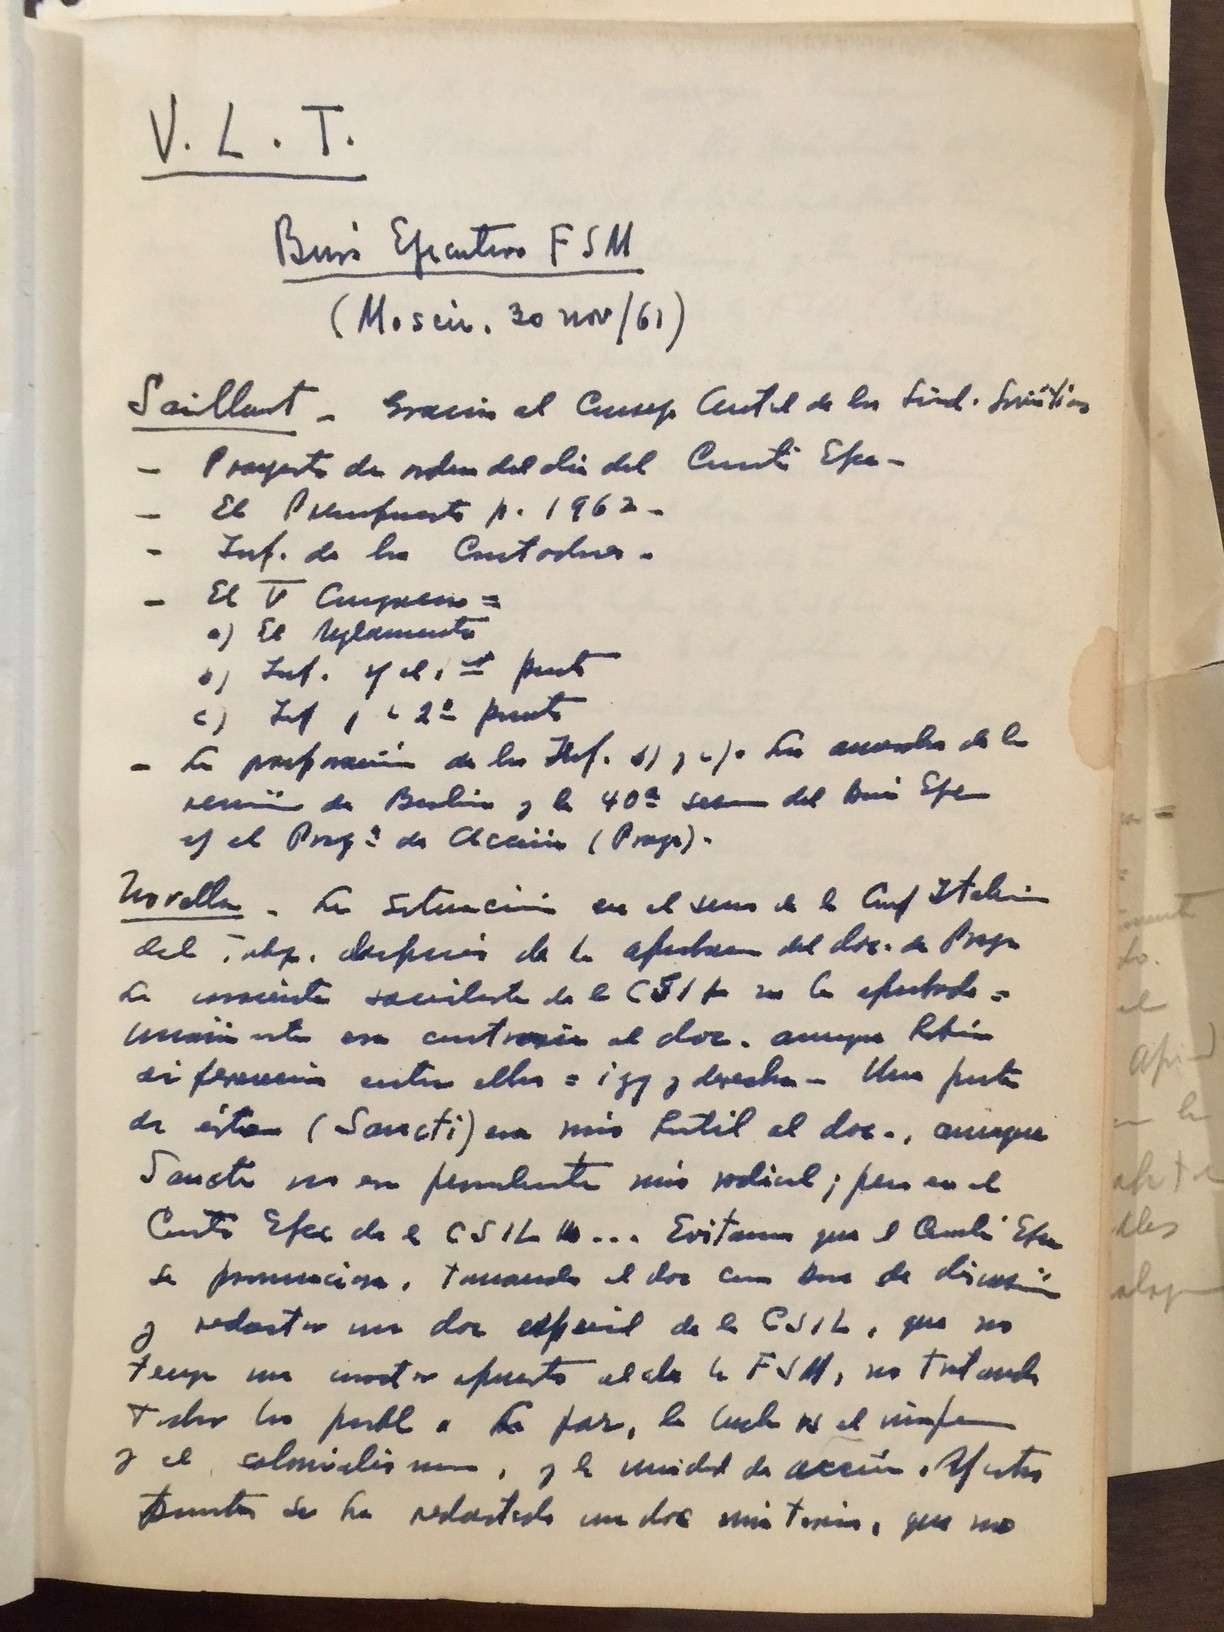 V. L. T.
Buró Ejecutivo FSM
(Moscú, 30 nov/61)
Saillant - Gracias al Consejo Central de los Sind. Soviéticos
- Proyecto de orden del día del Comité Ejec -
- El Presupuesto p. 1962 -
- Inf. de los Contadores -
- El V Congreso =
a) El Reglamento
b) Inf. s/ el 1er punto
c) Inf s/ el 2º punto
- La preparación de los Inf. b) y c). Los acuerdos de la
reunión de Berlín y la 40ª sesión del Buró Ejec
s/ el Progª de Acción (Praga).
Novella - La situación en el seno de la Conf Italiana
del Trabajo. después de la aprobación del doc. de Praga
La corriente socialista de la CGIL no lo aprobado =
era contraria al doc. aunque había
diferencias entre ellos = izq y derecha - Una parte
de éstos (Santi) era más hostil al doc., aunque
Santi no era personalmente más radical; pero en el
Comité Ejec de la CGIL ... Evitamos que el Comité Ejec
se pronunciara, tomando el doc como base de discusión
y redactar un doc especial de la CGIL, que no
tenga un carácter opuesto al de la FSM, no tratando
todos los probl = La paz, la lucha vs el imp
y el colonialismo, y la unidad de acción. S/ estos
puntos se ha redactado un doc unitario, que no